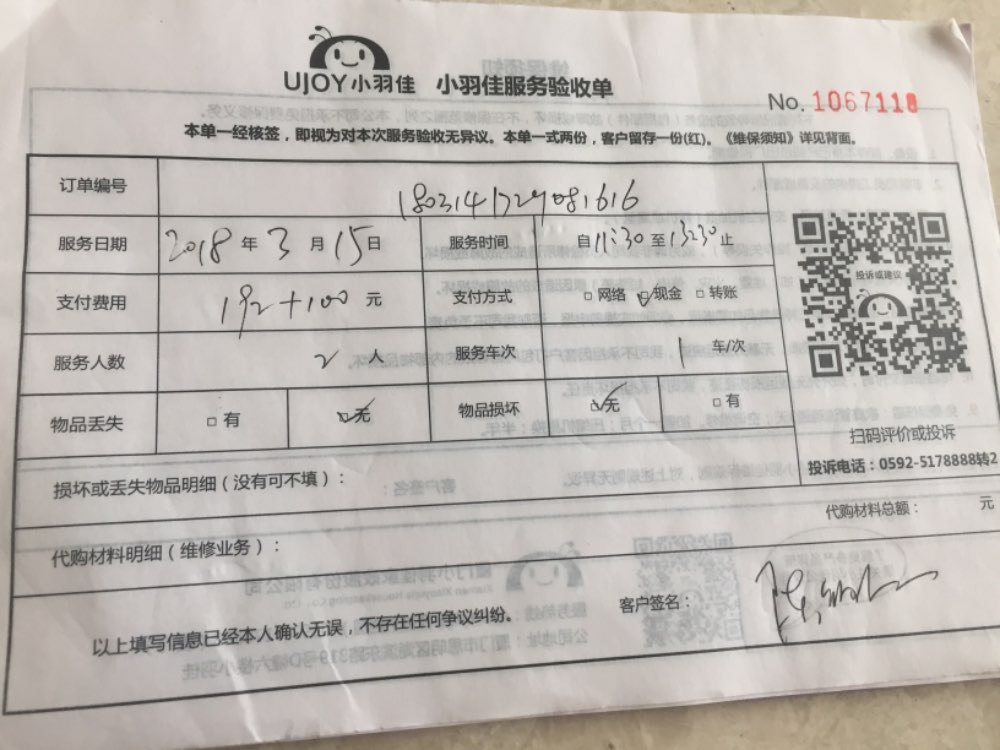 UJOY小羽佳 小羽佳服务验收单
No. 1067118
本单一经核签，即视为对本次服务验收无异议。本单一式两份，客户留存一份(红)。《维保须知》详见背面。
订单编号 180314172908 1616
服务日期 2018 年 3 月 15 日 服务时间 自 11:30 至 13:30 止
支付费用 192+100 元 支付方式 □ 网络 ☑ 现金 □ 转账
服务人数 2 人 服务车次 1 车/次
物品丢失 □ 有 ☑ 无 物品损坏 ☑ 无 □ 有
投诉或建议
扫码评价或投诉
投诉电话：0592-5178888转2
损坏或丢失物品明细（没有可不填）：
代购材料明细（维修业务）： 代购材料总额： 元
以上填写信息已经本人确认无误，不存在任何争议纠纷。 客户签名：